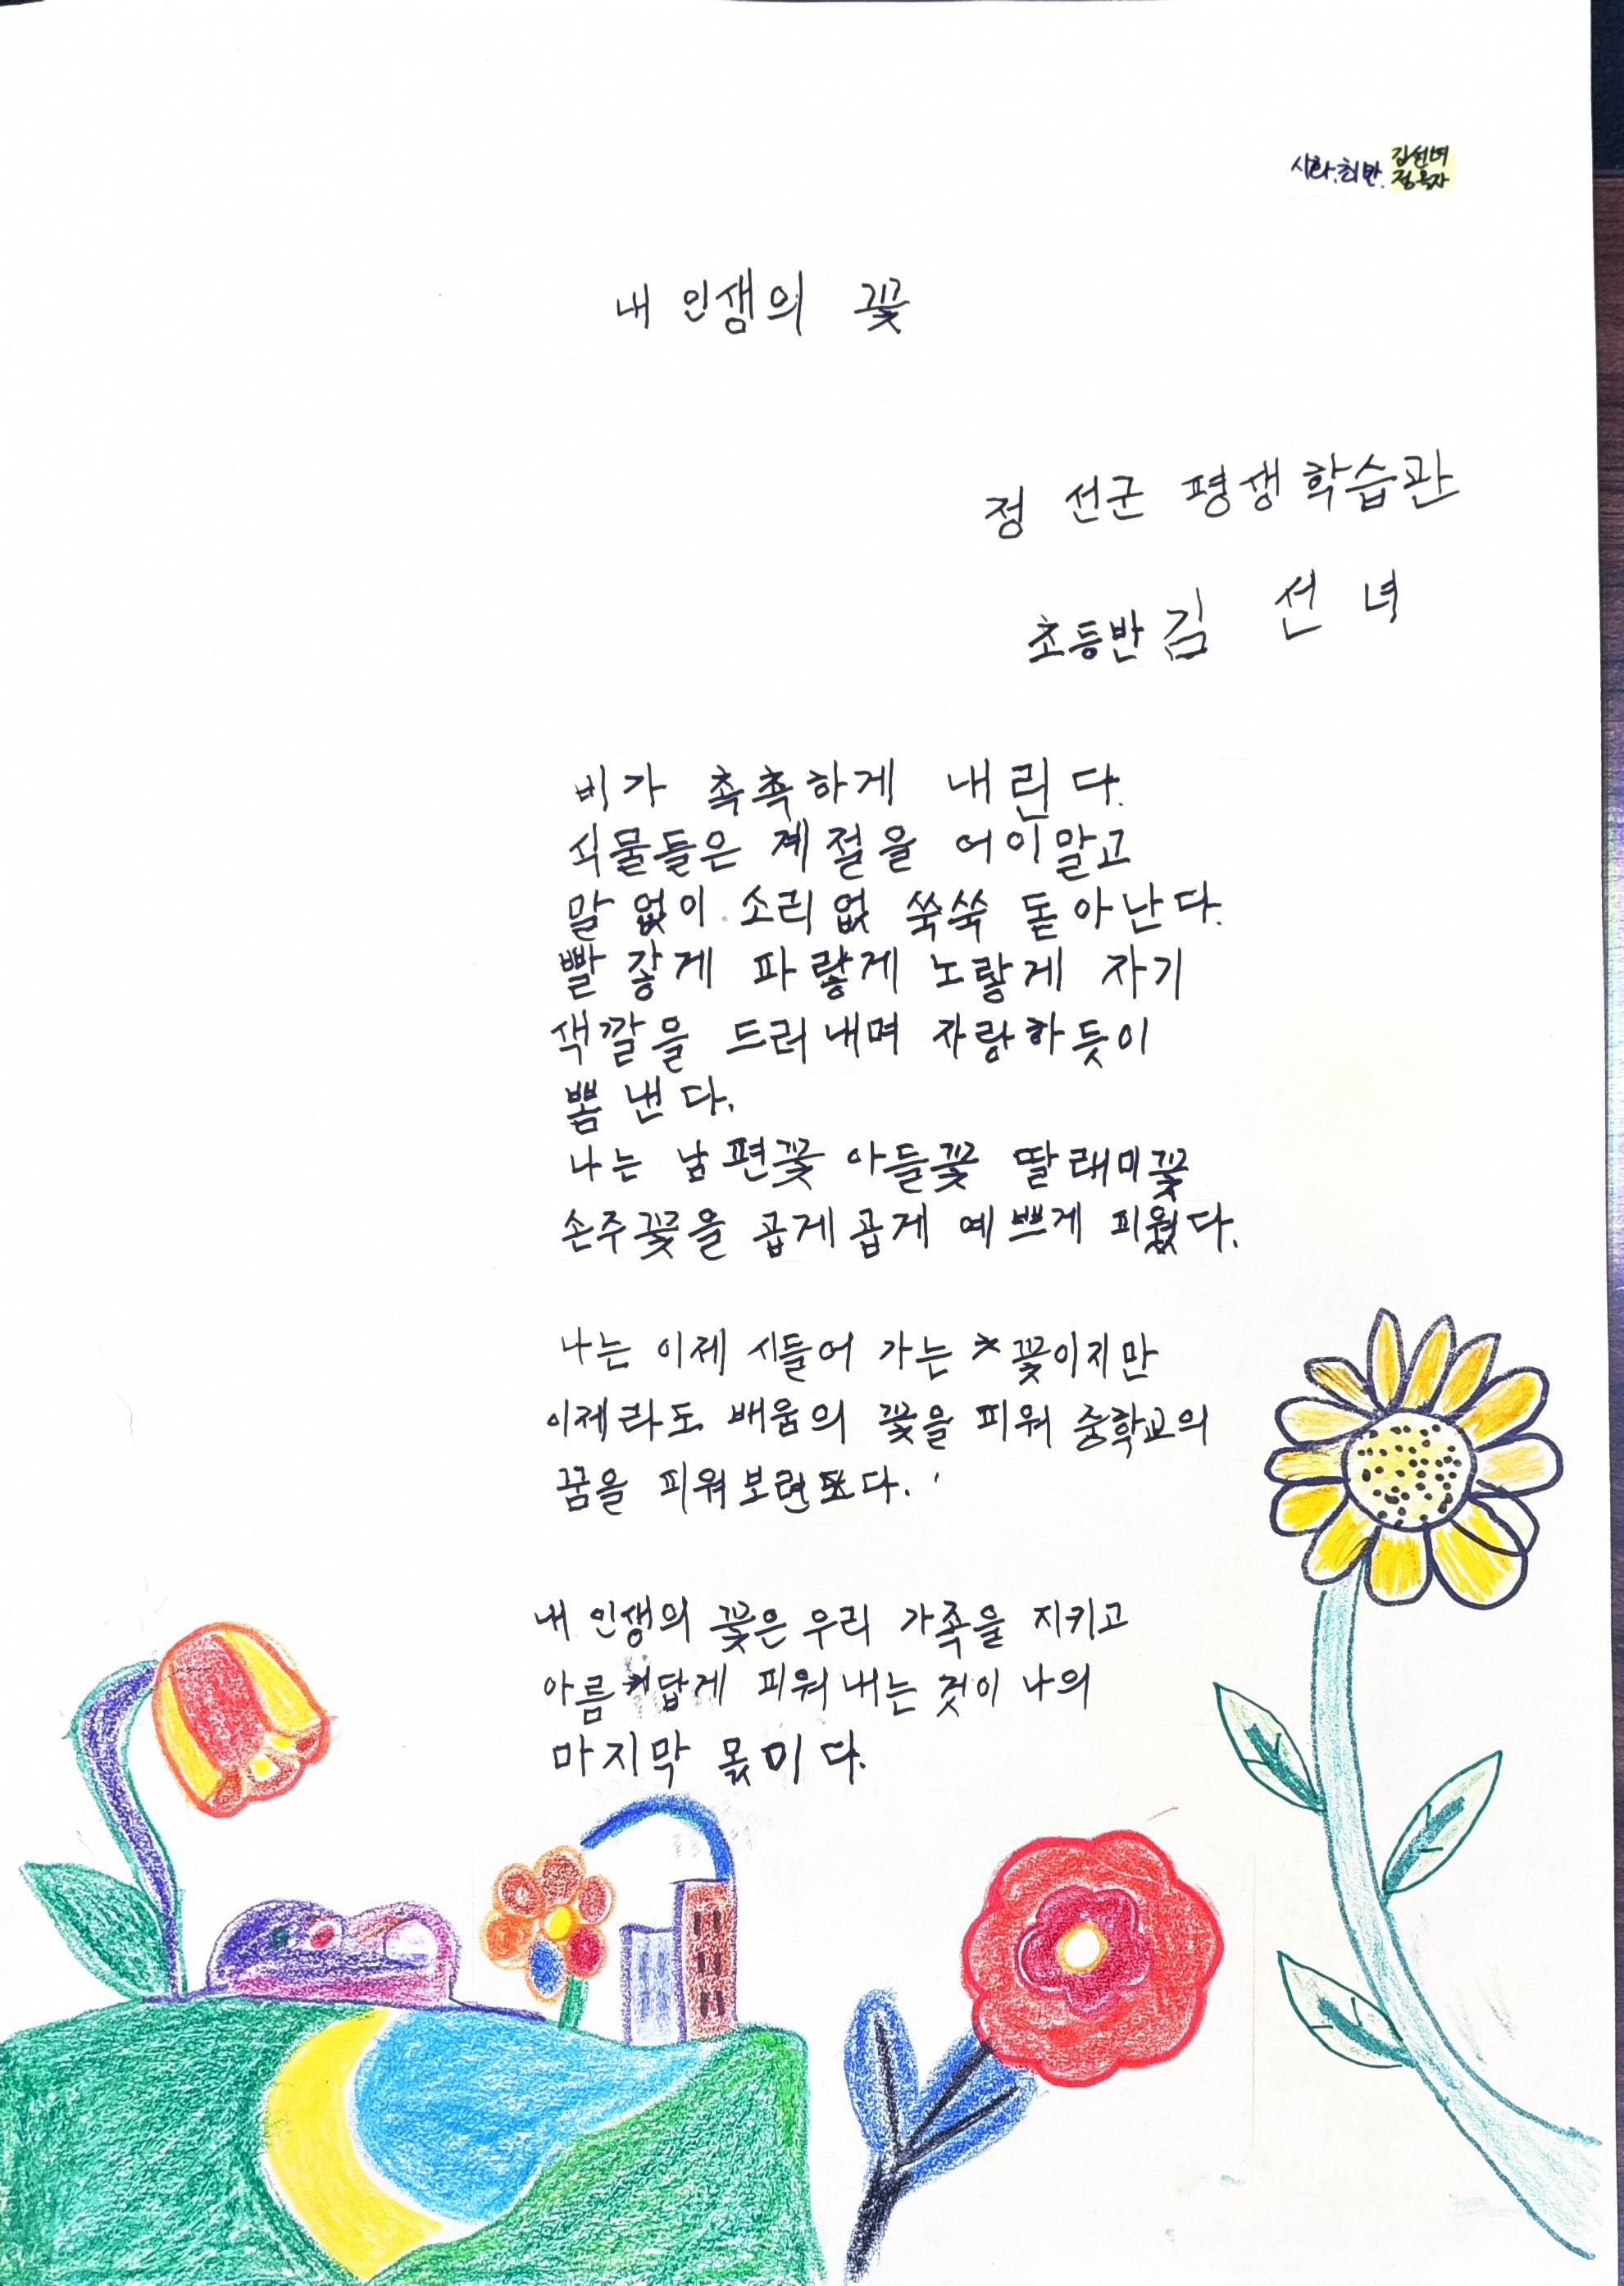 시화.최반. 김선녀
정옥자
내 인생의 꽃
정 선군 평생학습관
초등반 김 선 녀
비가 촉촉하게 내린다.
식물들은 계절을 어이말고
말 없이 소리없 쑥쑥 돋아난다.
빨갛게 파랗게 노랗게 자기
색깔을 드러내며 자랑하듯이
뽐낸다.
나는 남편꽃 아들꽃 딸래미꽃
손주꽃을 곱게곱게 예쁘게 피웠다.
나는 이제 시들어 가는 꽃이지만
이제라도 배움의 꽃을 피워 중학교의
꿈을 피워보련다.
내 인생의 꽃은 우리 가족을 지키고
아름답게 피워내는 것이 나의
마지막 몫이다.